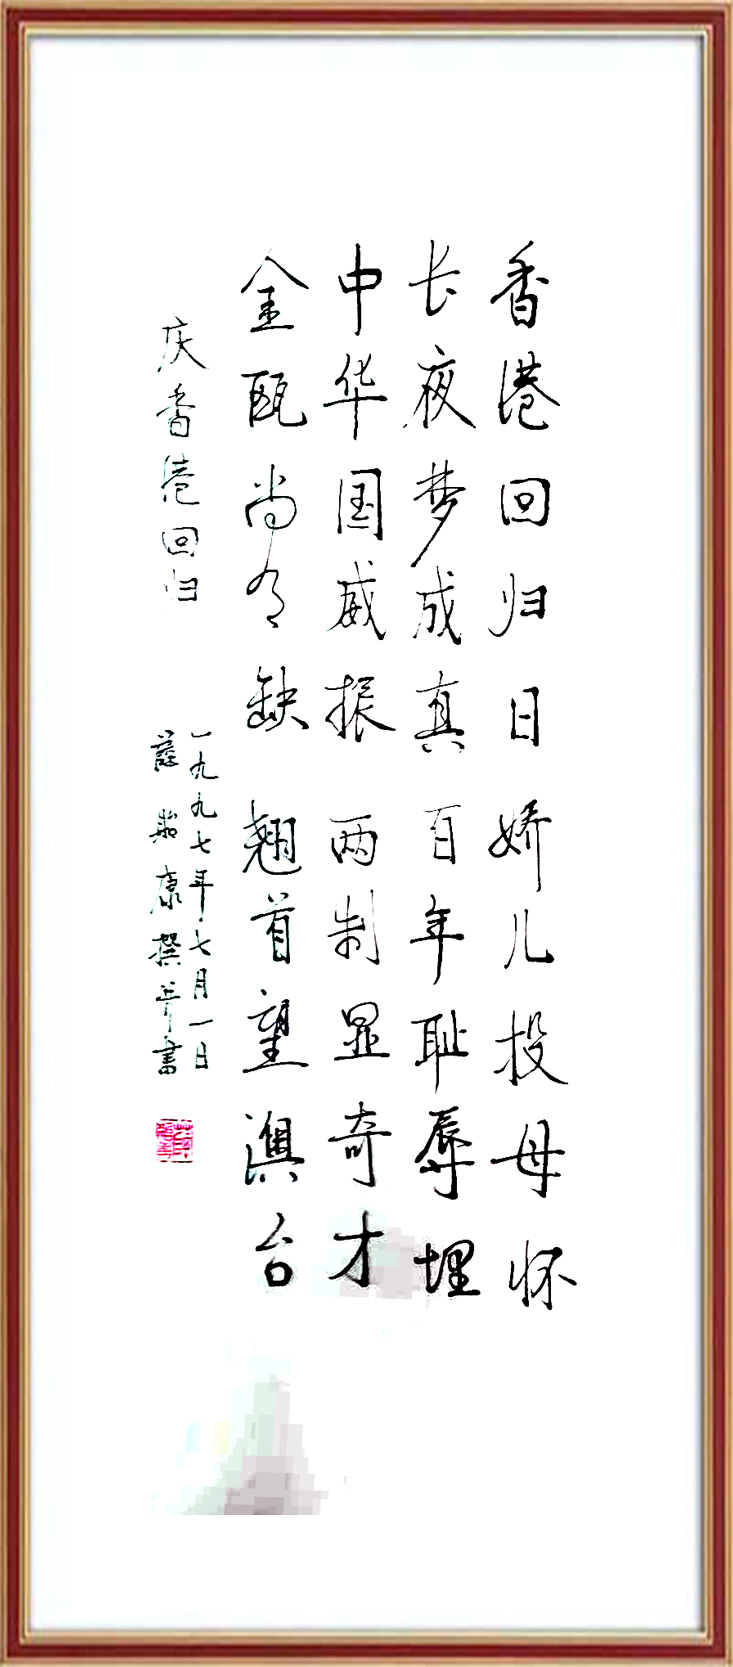 香港回归日娇儿投母怀
长夜梦成真百年耻辱埋
中华国威振两制显奇才
金瓯尚有缺翘首望澳台
庆香港回归
一九九七年七月一日
薛 康撰并书